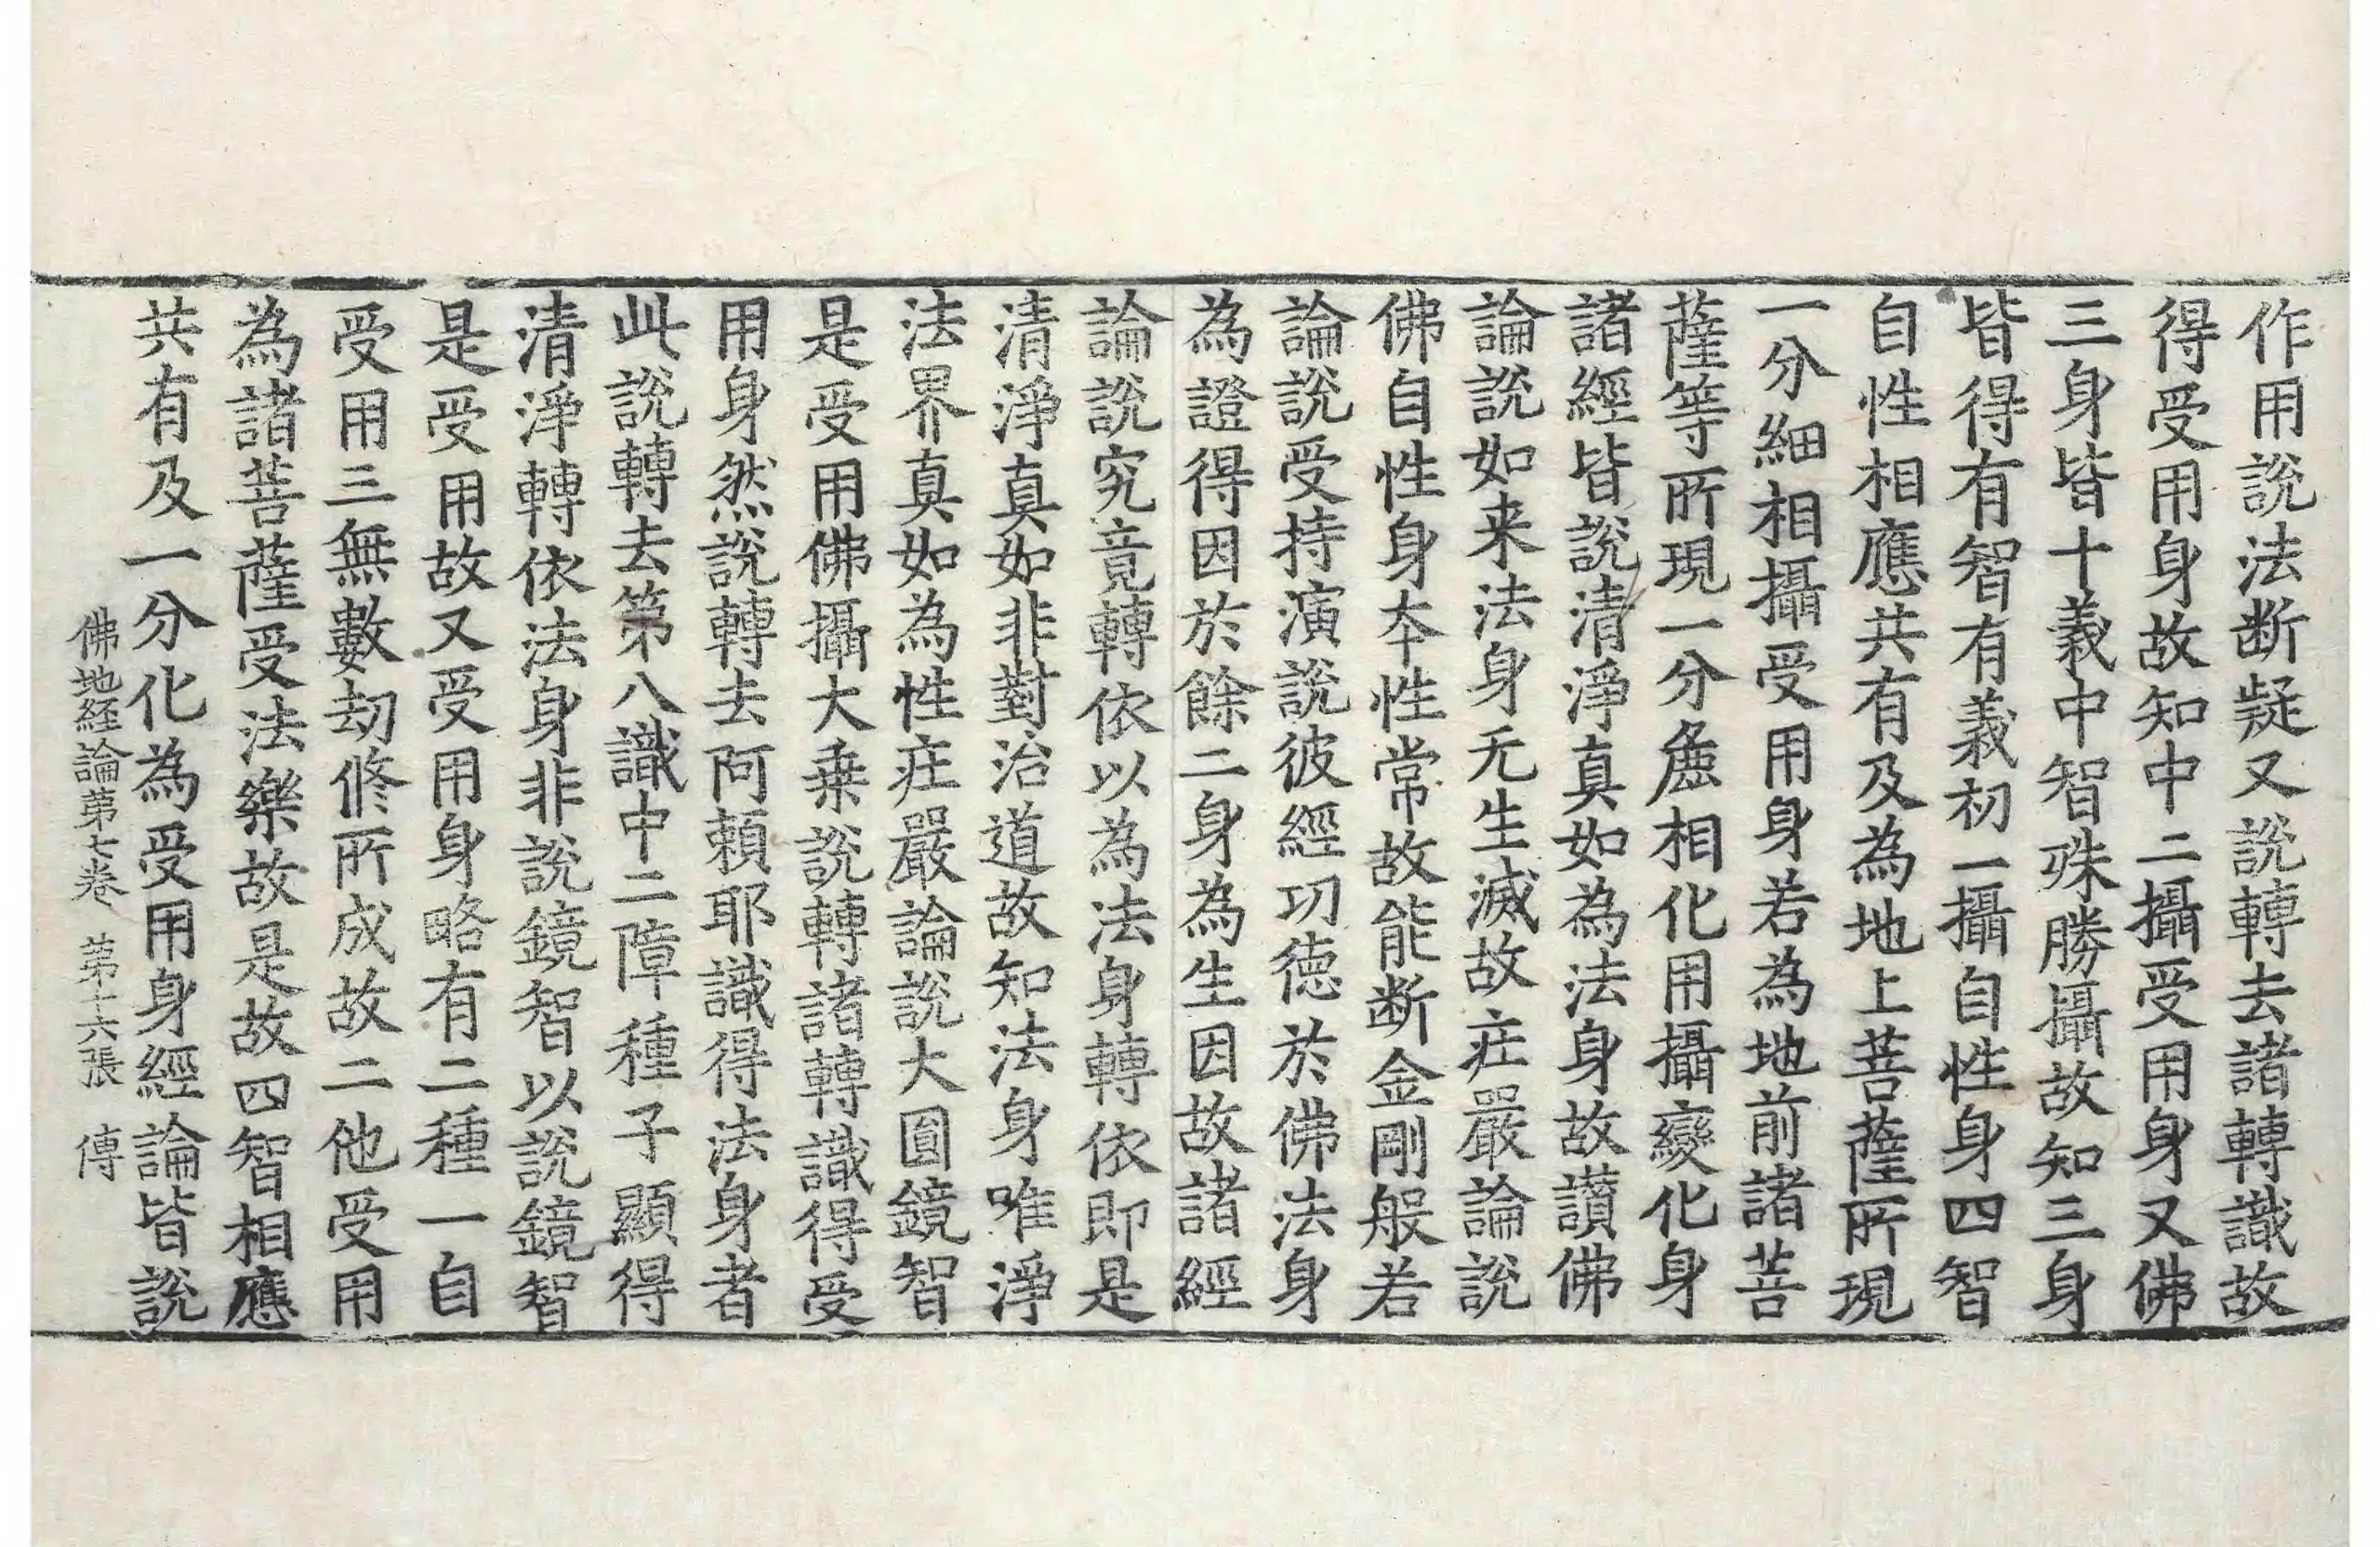 作用說法断疑又說轉去諸轉識故
得受用身故知中二攝受用身又佛
三身皆十義中智殊勝攝故知三身
皆得有智有義初一攝自性身四智
自性相應共有及為地上菩薩所現
一分細相攝受用身若為地前諸菩
薩等所現一分麁相化用攝變化身
諸經皆說清淨真如為法身故讃佛
論說如来法身无生滅故疘嚴論說
佛自性身夲性常故能断金剛般若
論說受持演說彼經功德於佛法身
為證得因於餘二身為生因故諸經
論說究竟轉依以為法身轉依即是
清淨真如非對治道故知法身唯淨
法界真如為性疘嚴論說大圓鏡智
是受用佛攝大乗說轉諸轉識得受
用身然說轉去阿賴耶識得法身者
此說轉去第八識中二障種子顯得
清淨轉依法身非說鏡智以說鏡智
是受用故又受用身略有二種一自
受用三無數劫修所成故二他受用
為諸菩薩受法樂故是故四智相應
共有及一分化為受用身經論皆說
佛地経論第七卷　第十六張　傳